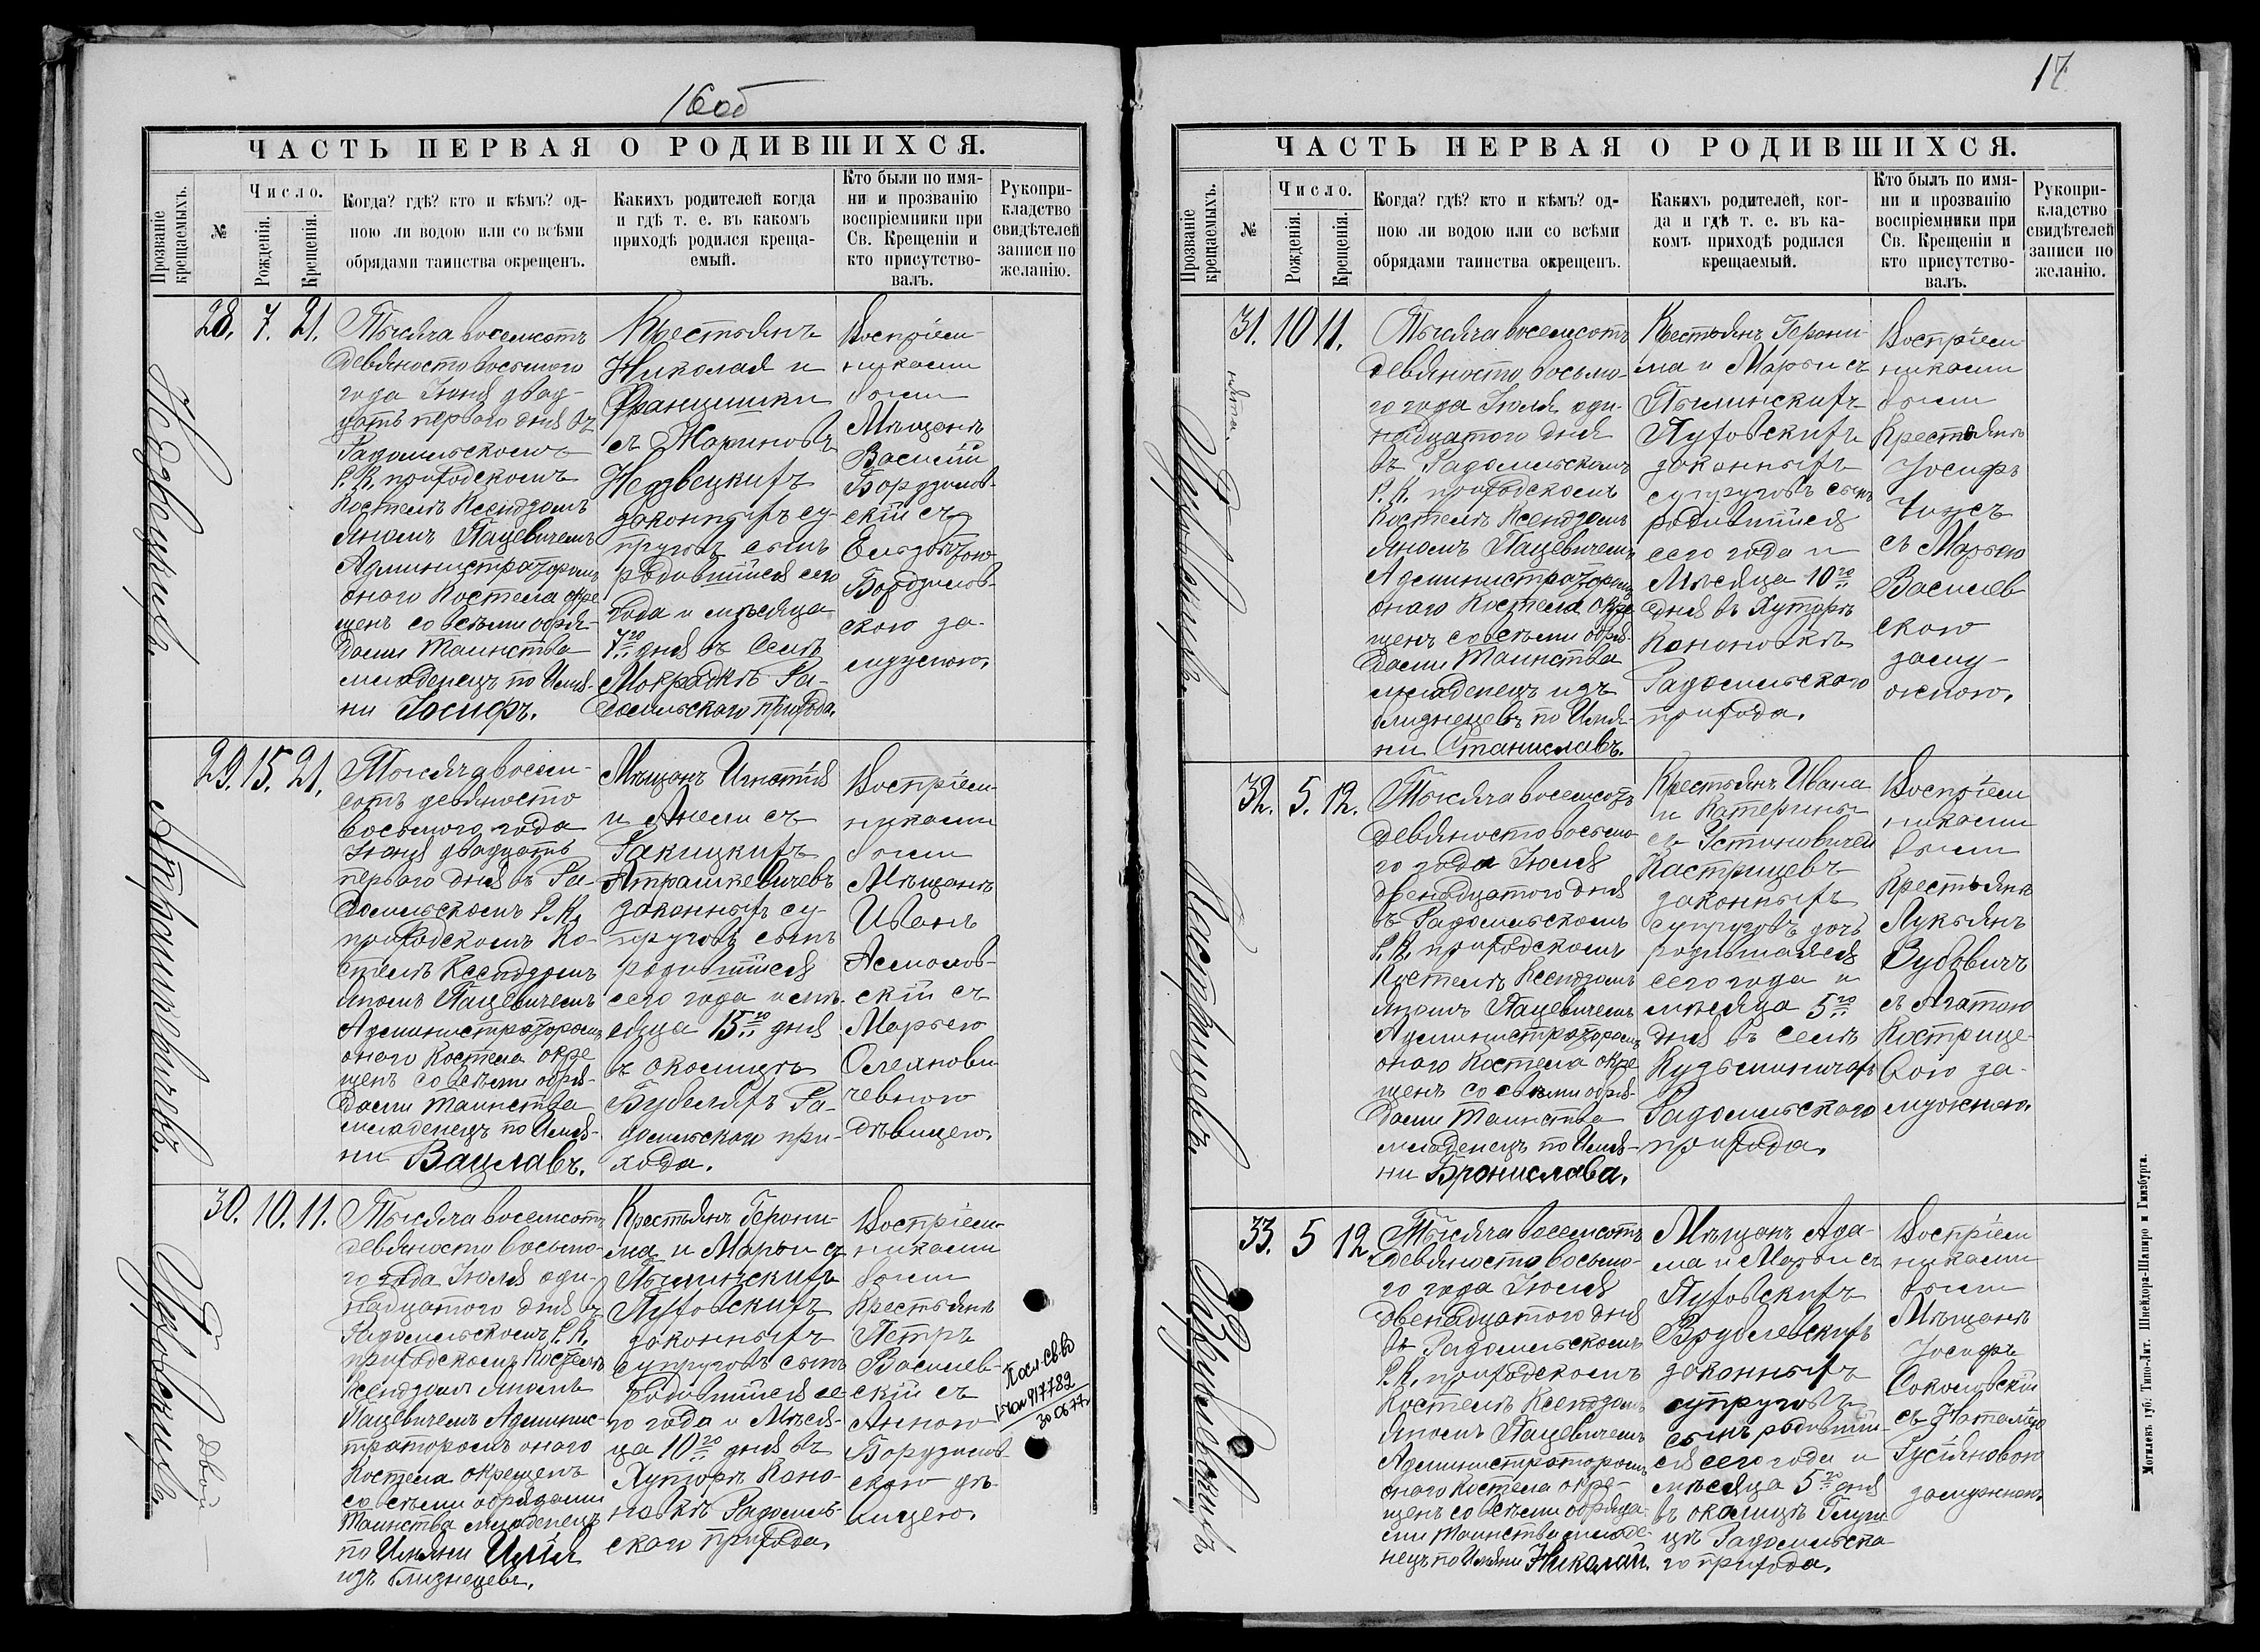 16об
ЧАСТЬ ПЕРВАЯ О РОДИВШИХСЯ.
Прозваніе крещаемыхъ.
№
Число.
Рожденія.
Крещенія.
Когда? гдѣ? кто и кѣмъ? од-
ною ли водою или со всѣми
обрядами таинства окрещенъ.
Какихъ родителей когда
и гдѣ т. е. въ какомъ
приходѣ родился креща-
емый.
Кто были по имя-
ни и прозванію
воспріемники при
Св. Крещеніи и
кто присутство-
валъ.
Рукопри-
кладство
свидѣтелей
записи по
желанію.
Недзвецкихъ.
28. 7. 21.
Тысяча восемсотъ
девяносто восьмого
года Іюня двад-
цать перваго дня въ
Радомльскомъ
Р. К. приходскомъ
Костелѣ Ксендзомъ
Яномъ Пацевичемъ
Администраторомъ
онаго Костела окре
щенъ со всѣми обря-
дами Таинства
младенецъ по Имя-
ни Іосифъ.
Крестьянъ
Николая и
Францишки
съ
Недзвецкихъ
законныхъ су-
пруговъ сынъ
родившійся сего
года и мѣсяца
7го дня въ Селѣ
Мокрядкѣ Ра-
домльскаго прихода.
Воспріем-
никами
были
Мѣщане
Василій
Бордзилов-
скій съ
Бордзилов-
скою за-
мужнею.
Атрашкевичевъ.
29. 15. 21.
Тысяча восем-
сотъ девяносто
восьмого года
Іюня двадцать
перваго дня въ Ра-
домльскомъ Р. К.
приходскомъ Ко-
стелѣ Ксендзомъ
Яномъ Пацевичемъ
Администраторомъ
онаго Костела окре
щенъ со всѣми обря-
дами Таинства
младенецъ по Имя-
ни Вацлавъ.
Мѣщанъ Игнатія
и Анели съ
Ракицкихъ
Атрашкевичевъ
законныхъ су-
пруговъ сынъ
родившійся
сего года и мѣ-
сяца 15го дня
въ околицѣ
Ра-
домльскаго при-
хода.
Воспріем-
никами
были
Мѣщане
Иванъ
Асмолов-
скій съ
Марьею
Олехнови
чевною
дѣвицею.
Пуховскихъ двой
30. 10. 11.
Тысяча восемсотъ
девяносто восьмо-
го года Іюля оди-
надцатого дня въ
Радомльскомъ Р. К.
приходскомъ Костелѣ
Ксендзомъ Яномъ
Пацевичемъ Админис-
траторомъ онаго
Костела окрещенъ
со всѣми обрядами
Таинства младенецъ
по Имяни
изъ близнецевъ.
Крестьянъ Герони-
ма и Марьи съ
Пуховскихъ
законныхъ
супруговъ сынъ
родившійся се-
го года и Мѣся-
ца 10го дня въ
Хуторѣ Коно-
новкѣ Радомль-
скаго прихода.
Воспріем-
никами
были
Крестьяне
Петръ
Василев-
скій съ
Анною
Бордзилов-
скою дѣ-
вицею.
17
ЧАСТЬ ПЕРВАЯ О РОДИВШИХСЯ.
Прозваніе крещаемыхъ.
№
Число.
Рожденія.
Крещенія.
Когда? гдѣ? кто и кѣмъ? од-
ною ли водою или со всѣми
обрядами таинства окрещенъ.
Какихъ родителей, ког-
да и гдѣ т. е. въ ка-
комъ приходѣ родился
крещаемый.
Кто былъ по имя-
ни и прозванію
воспріемники при
Св. Крещеніи и
кто присутство-
валъ.
Рукопри-
кладство
свидѣтелей
записи по
желанію.
нята.
Пуховскихъ.
31. 10 11.
Тысяча восемсотъ
девяносто восьмо-
го года Іюля оди-
надцатого дня
въ Радомльскомъ
Р. К. приходскомъ
Костелѣ Ксендзомъ
Яномъ Пацевичемъ
Администраторомъ
онаго Костела окре
щенъ со всѣми обря-
дами Таинства
младенецъ изъ
близнецевъ по Имя-
ни Станиславъ.
Крестьянъ Герони-
ма и Марьи съ
Пуховскихъ
законныхъ
супруговъ сынъ
родившійся
сего года и
Мѣсяца 10го
дня въ Хуторѣ
Кононовкѣ
Радомльскаго
прихода.
Воспріем
никами
были
Крестьяне
Іосифъ
Чижъ
съ Марьею
Василев
скою
заму-
жнею.
Кастрицевъ.
32. 5. 12.
Тысяча восемсотъ
девяносто восьмо-
го года Іюля
двенадцатого дня
въ Радомльскомъ
Р. К. приходскомъ
Костелѣ Ксендзомъ
Яномъ Пацевичемъ
Администраторомъ
онаго Костела окре
щенъ со всѣми обря-
дами Таинства
младенецъ по Имя-
ни Бронислава.
Крестьянъ Ивана
и Катерины
съ Устиновичей
Кастрицевъ
законныхъ
супруговъ дочь
родившаяся
сего года и
мѣсяца 5го
дня въ селѣ
Кузьминичахъ
Радомльскаго
прихода.
Воспріем
никами
были
Крестьяне
Лукьянъ
Зубовичъ
съ Агатою
Кострице-
вою за-
мужнею.
Врублевскихъ
33. 5 12.
Тысяча восемсотъ
девяносто восьмо-
го года Іюля
двенадцатого дня
въ Радомльскомъ
Р. К. приходскомъ
Костелѣ Ксендзомъ
Яномъ Пацевичемъ
Администраторомъ
онаго Костела окре-
щенъ со всѣми обряда-
ми Таинства младе-
нецъ по Имяни Николай.
Мѣщанъ Ада-
ма и Марьи съ
Пуховскихъ
Врублевскихъ
законныхъ
супруговъ
сынъ родивший-
ся сего года и
мѣсяца 5го дня
въ околицѣ
Радомльска
го прихода.
Воспріем
никами
были
Мѣщане
Іосифъ
Соколовскій
съ Наталіею
замужнею.
Могилевъ губ. Типо-Лит. Шнейдора-Шапиро и Гинзбурга.